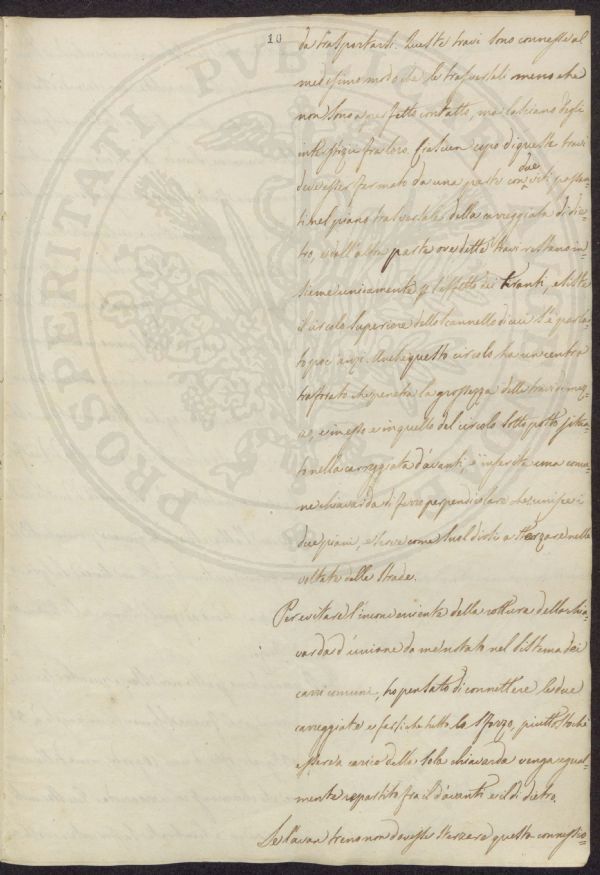 10
da trasportarsi. Queste travi sono connesse al
medesimo modo che le trasversali meno che
non sono a perfetto contatto, ma lasciano degli
interstizii fra loro. Ciascun capo di queste travi
due
deve esser fermato da una parte con viti posta-
ti nel piano trasversale della carreggiata di die-
tro, e dall'altra parte ove dette travi restano in-
sieme unicamente p l'effetto dei tiranti, esiste
il circolo superiore dello scannello di cui s'è parla-
to poc'anzi. Anche questo circolo ha un centro
traforato che penetra la grossezza della trave di mez-
zo, e in esso e in quello del circolo sottoposto situa-
to nella carreggiata d'avanti, è inserita una comu-
ne chiavarda di ferro perpendicolare che unisce i
due piani, e serve come suol dirsi a sterzare nelle
voltate delle strade.
Per evitare l'inconveniente della rottura della chia-
varda d'unione da me notato nel sistema dei
carri comuni, ho pensato di connettere le due
carreggiate e far sì che tutto lo sforzo, piuttosto che
essere a carico della sola chiavarda venga egual-
mente repartito fra il d'avanti e il di dietro.
Se l'avan treno non dovesse sterzare questa connessio-
PROSPERITATI PUBLICAE